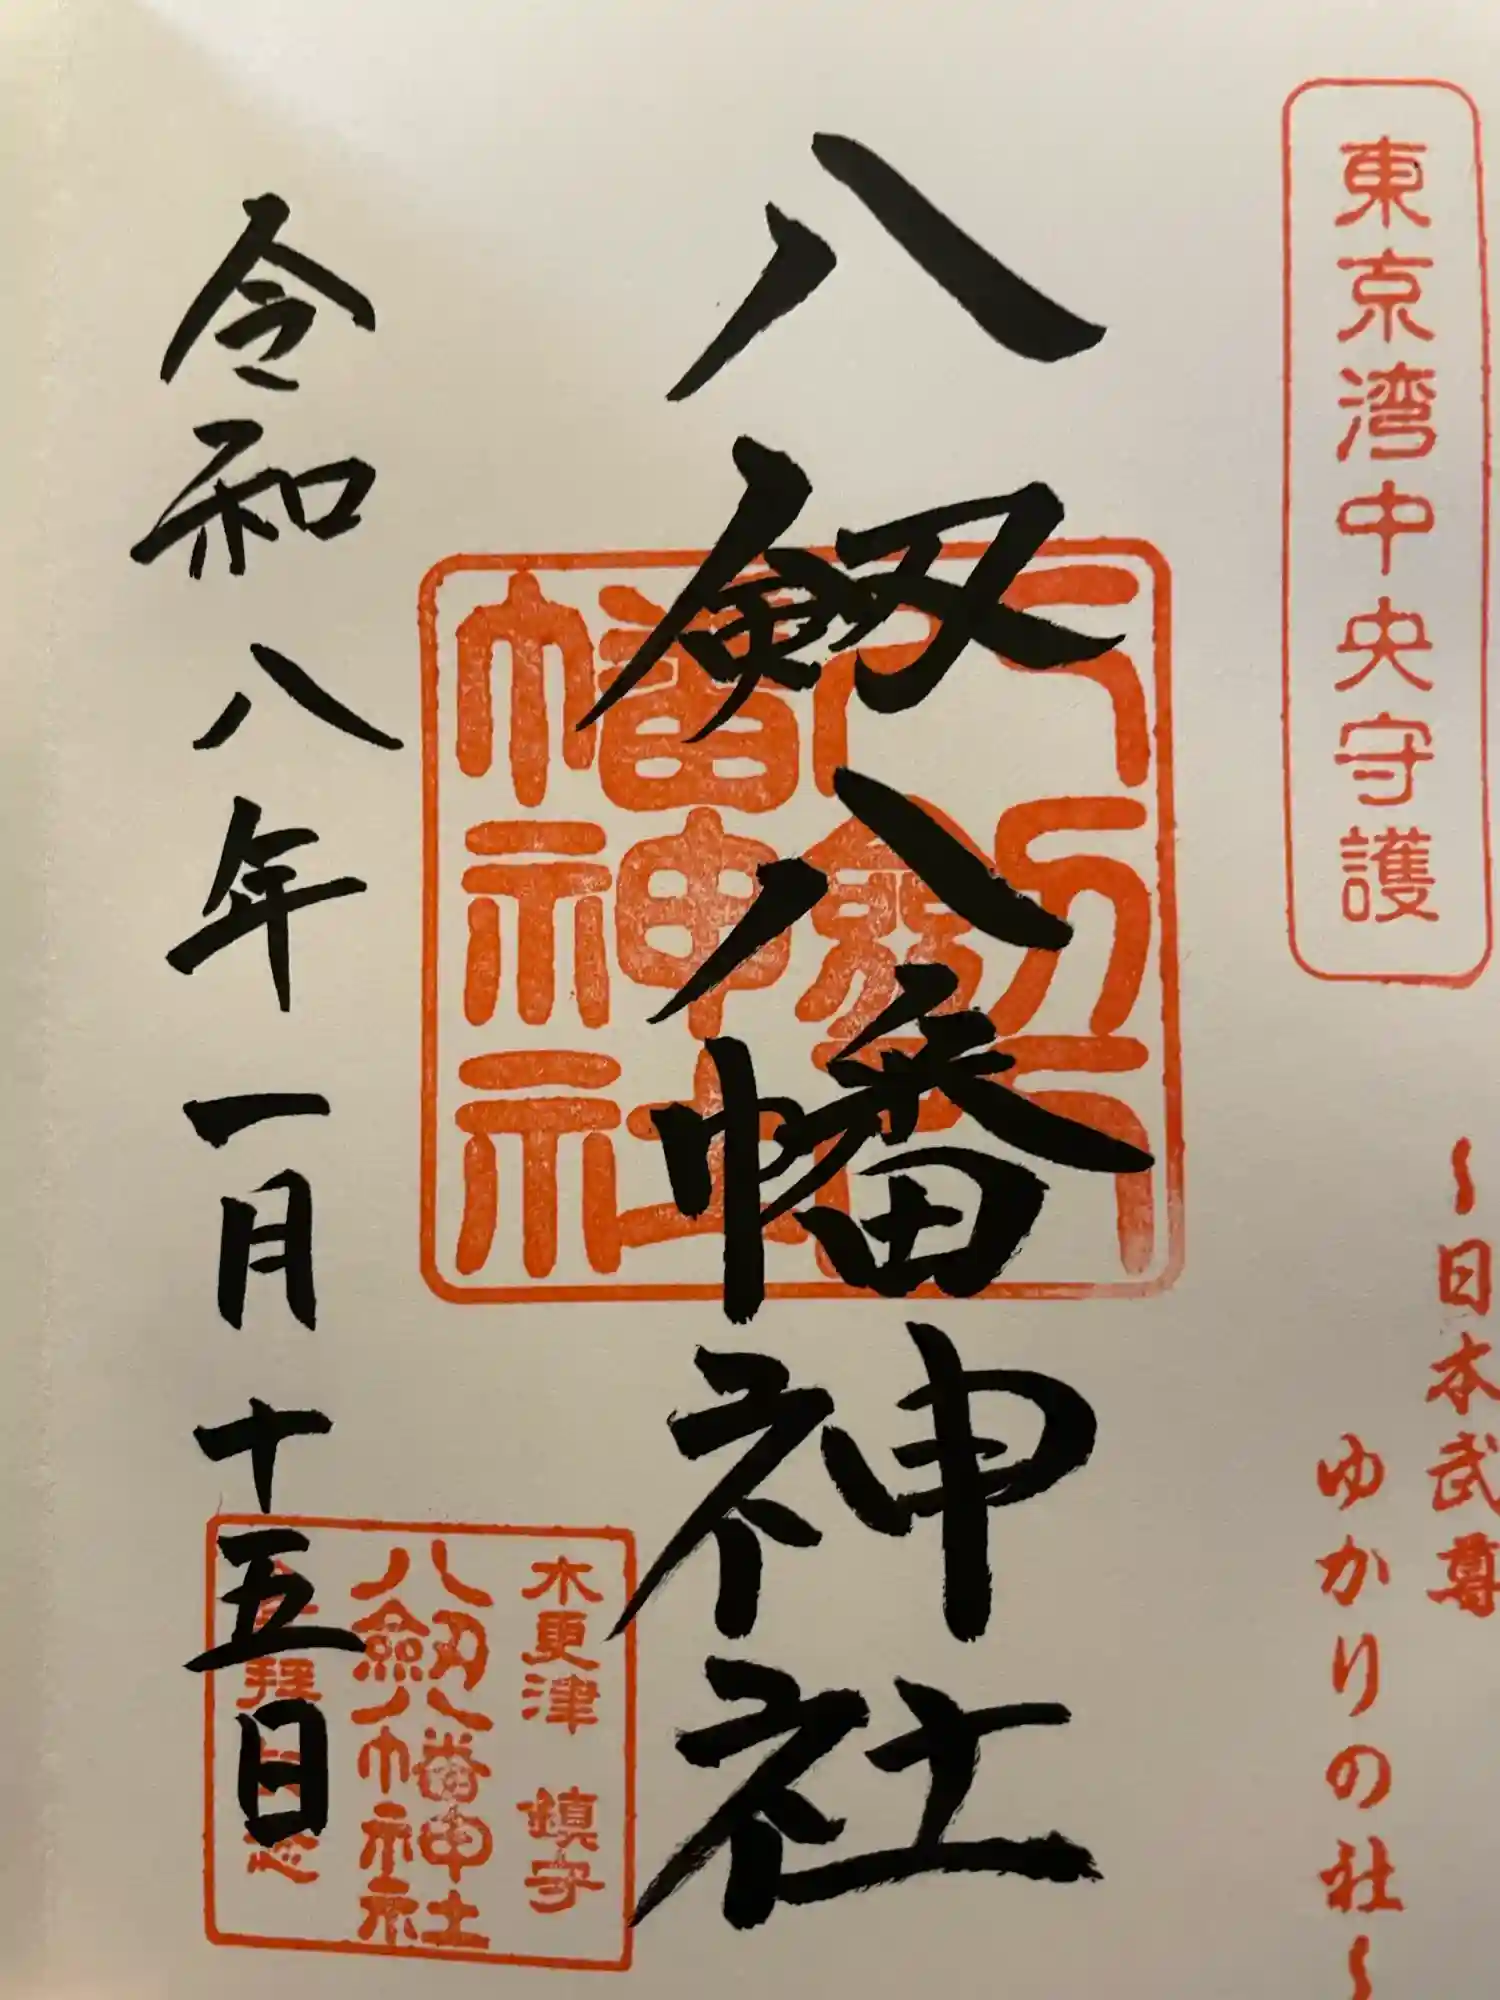 東京湾中央守護
～日本武尊
ゆかりの社～
八剱八幡神社
八剱八幡神社
令和八年一月十五日
木更津 鎮守
八剱八幡神社